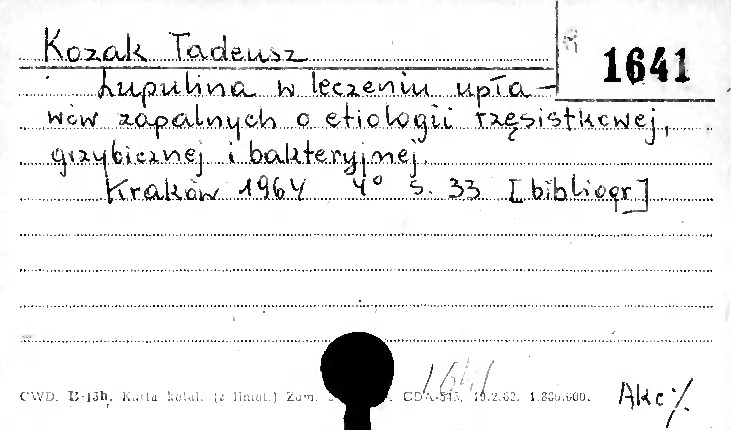 Kozak Tadeusz
1641
Lupulina w leczeniu upła-
wów zapalnych o etiologii rzęsistkowej,
grzybicznej i bakteryjnej.
Kraków 1964 4° s. 33 [bibliogr]
1641
CWD. Karta katal. (z liniat.) Zam. 1.800.000.
Akc /.